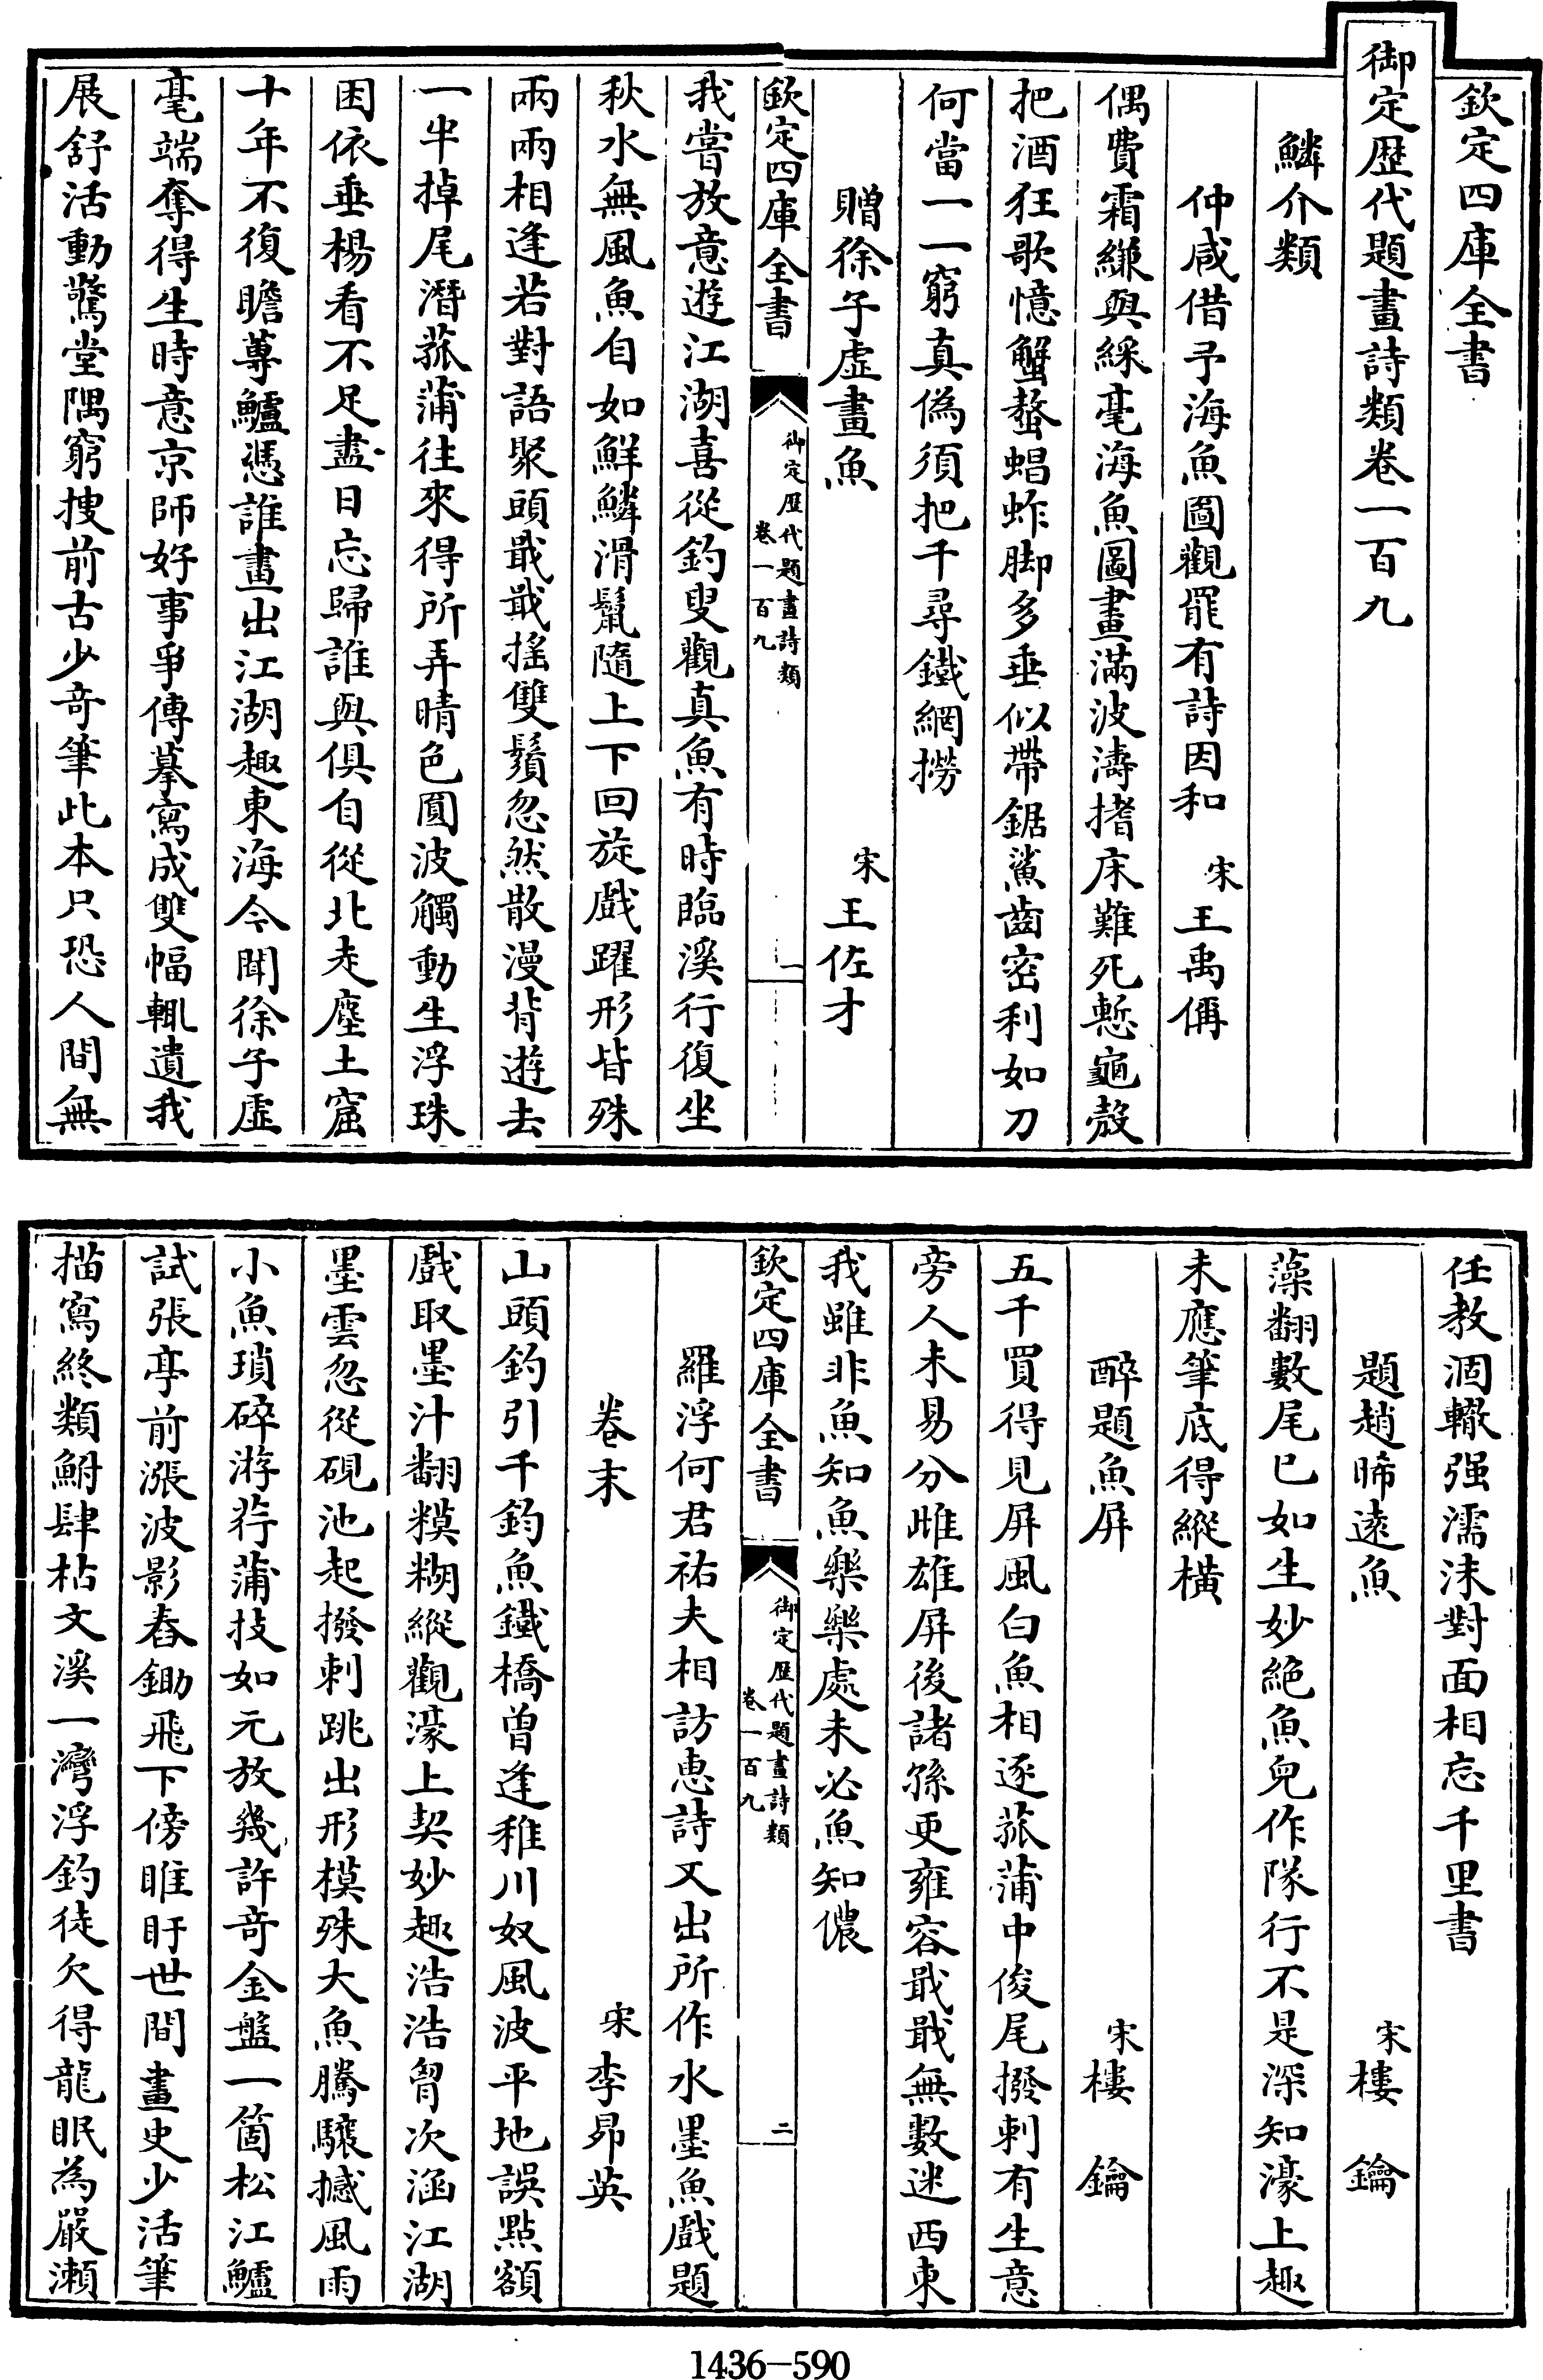 欽定四庫全書
御定歴代題畫詩類卷一百九
鱗介類
仲咸借予海魚圖觀罷有詩因和 宋王禹偁
偶費霜縑與綵毫海魚圖畫滿波濤搘床難死慙龜殼
把酒狂歌憶蟹螯蜡蚱脚多垂似帶鋸鯊齒密利如刀
何當一一窮真偽須把千尋鐵網撈
贈徐子虚畫魚 宋王佐才
欽定四庫全書 御定歴代題畫詩類卷一百九 一
我嘗放意遊江湖喜從釣叟觀真魚有時臨溪行復坐
秋水無風魚自如鮮鱗滑鬣隨上下回旋戯躍形皆殊
兩兩相逢若對語聚頭戢戢搖雙鬚忽然散漫背遊去
一半掉尾潛菰蒲往來得所弄晴色圓波觸動生浮珠
困依垂楊看不足盡日忘歸誰與俱自從北走塵土窟
十年不復瞻蓴鱸憑誰畫出江湖趣東海今聞徐子虚
毫端奪得生時意京師好事爭傳摹寫成雙幅輒遺我
展舒活動驚堂隅窮搜前古少奇筆此本只恐人間無
任教涸轍强濡沫對面相忘千里書
題趙晞遠魚 宋樓鑰
藻翻數尾已如生妙絶魚兒作隊行不是深知濠上趣
未應筆底得縱横
醉題魚屏 宋樓鑰
五千買得見屏風白魚相逐菰蒲中俊尾撥剌有生意
旁人未易分雌雄屏後諸孫更雍容戢戢無數迷西東
我雖非魚知魚樂樂處未必魚知儂
欽定四庫全書 御定歴代題畫詩類卷一百九 二
羅浮何君祐夫相訪惠詩又出所作水墨魚戯題
卷末 宋李昴英
山頭釣引千鈞魚鐵橋曾逢稚川奴風波平地誤點額
戯取墨汁翻糢糊縱觀濠上契妙趣浩浩胷次涵江湖
墨雲忽從硯池起撥剌跳出形模殊大魚騰驤撼風雨
小魚瑣碎游荇蒲技如元放幾許奇金盤一箇松江鱸
試張亭前漲波影舂鋤飛下傍睢盱世間畫史少活筆
描寫終類鮒肆枯文溪一灣浮釣徒欠得龍眠為嚴瀬
1436-590